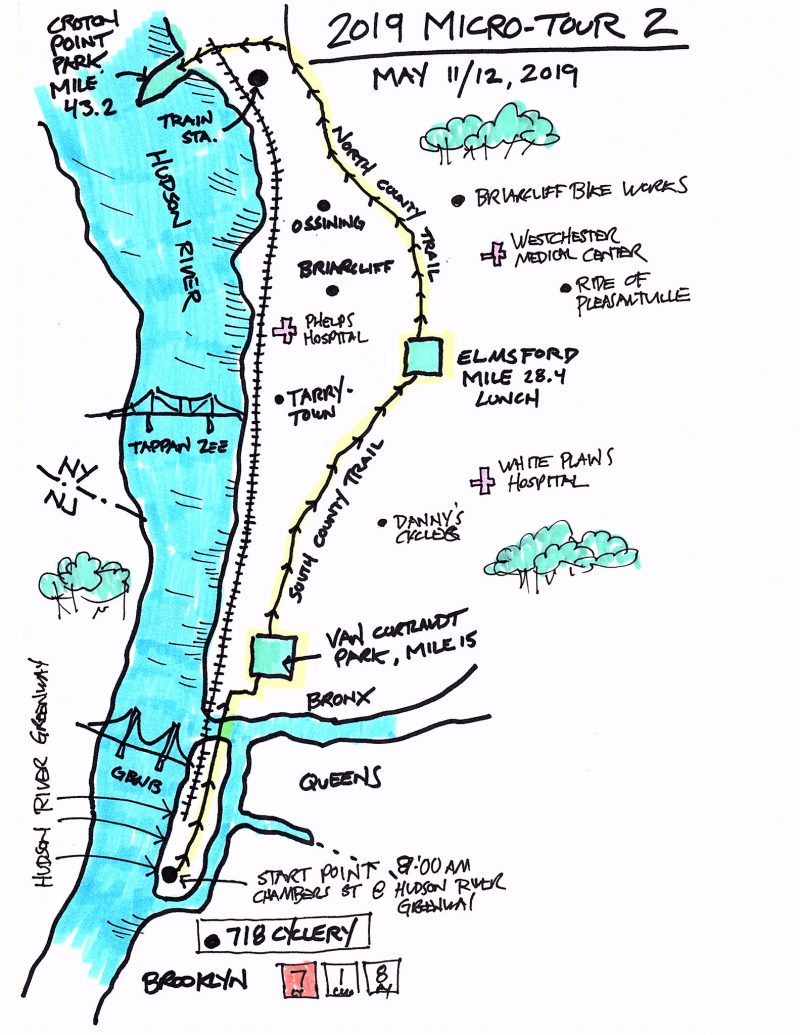 2019 MICRO-TOUR 2
MAY 11/12, 2019
CROTON
POINT
PARK
MILE
43.2
TRAIN
STA.
HUDSON RIVER
NORTH COUNTY TRAIL
BRIARCLIFF BIKE WORKS
OSSINING
WESTCHESTER
MEDICAL CENTER
BRIARCLIFF
RIDE OF
PLEASANTVILLE
PHELPS
HOSPITAL
ELMSFORD
MILE 28.4
LUNCH
TARRY-
TOWN
TAPPAN ZEE
SOUTH COUNTY TRAIL
WHITE PLAINS
HOSPITAL
NY
NJ
DANNY'S
CYCLES
VAN CORTLANDT
PARK, MILE 15
BRONX
HUDSON RIVER GREENWAY
GRWB
QUEENS
START POINT 8:00 AM
CHAMBERS ST @ HUDSON RIVER
GREENWAY
718 CYCLERY
BROOKLYN
7 1 8
CY